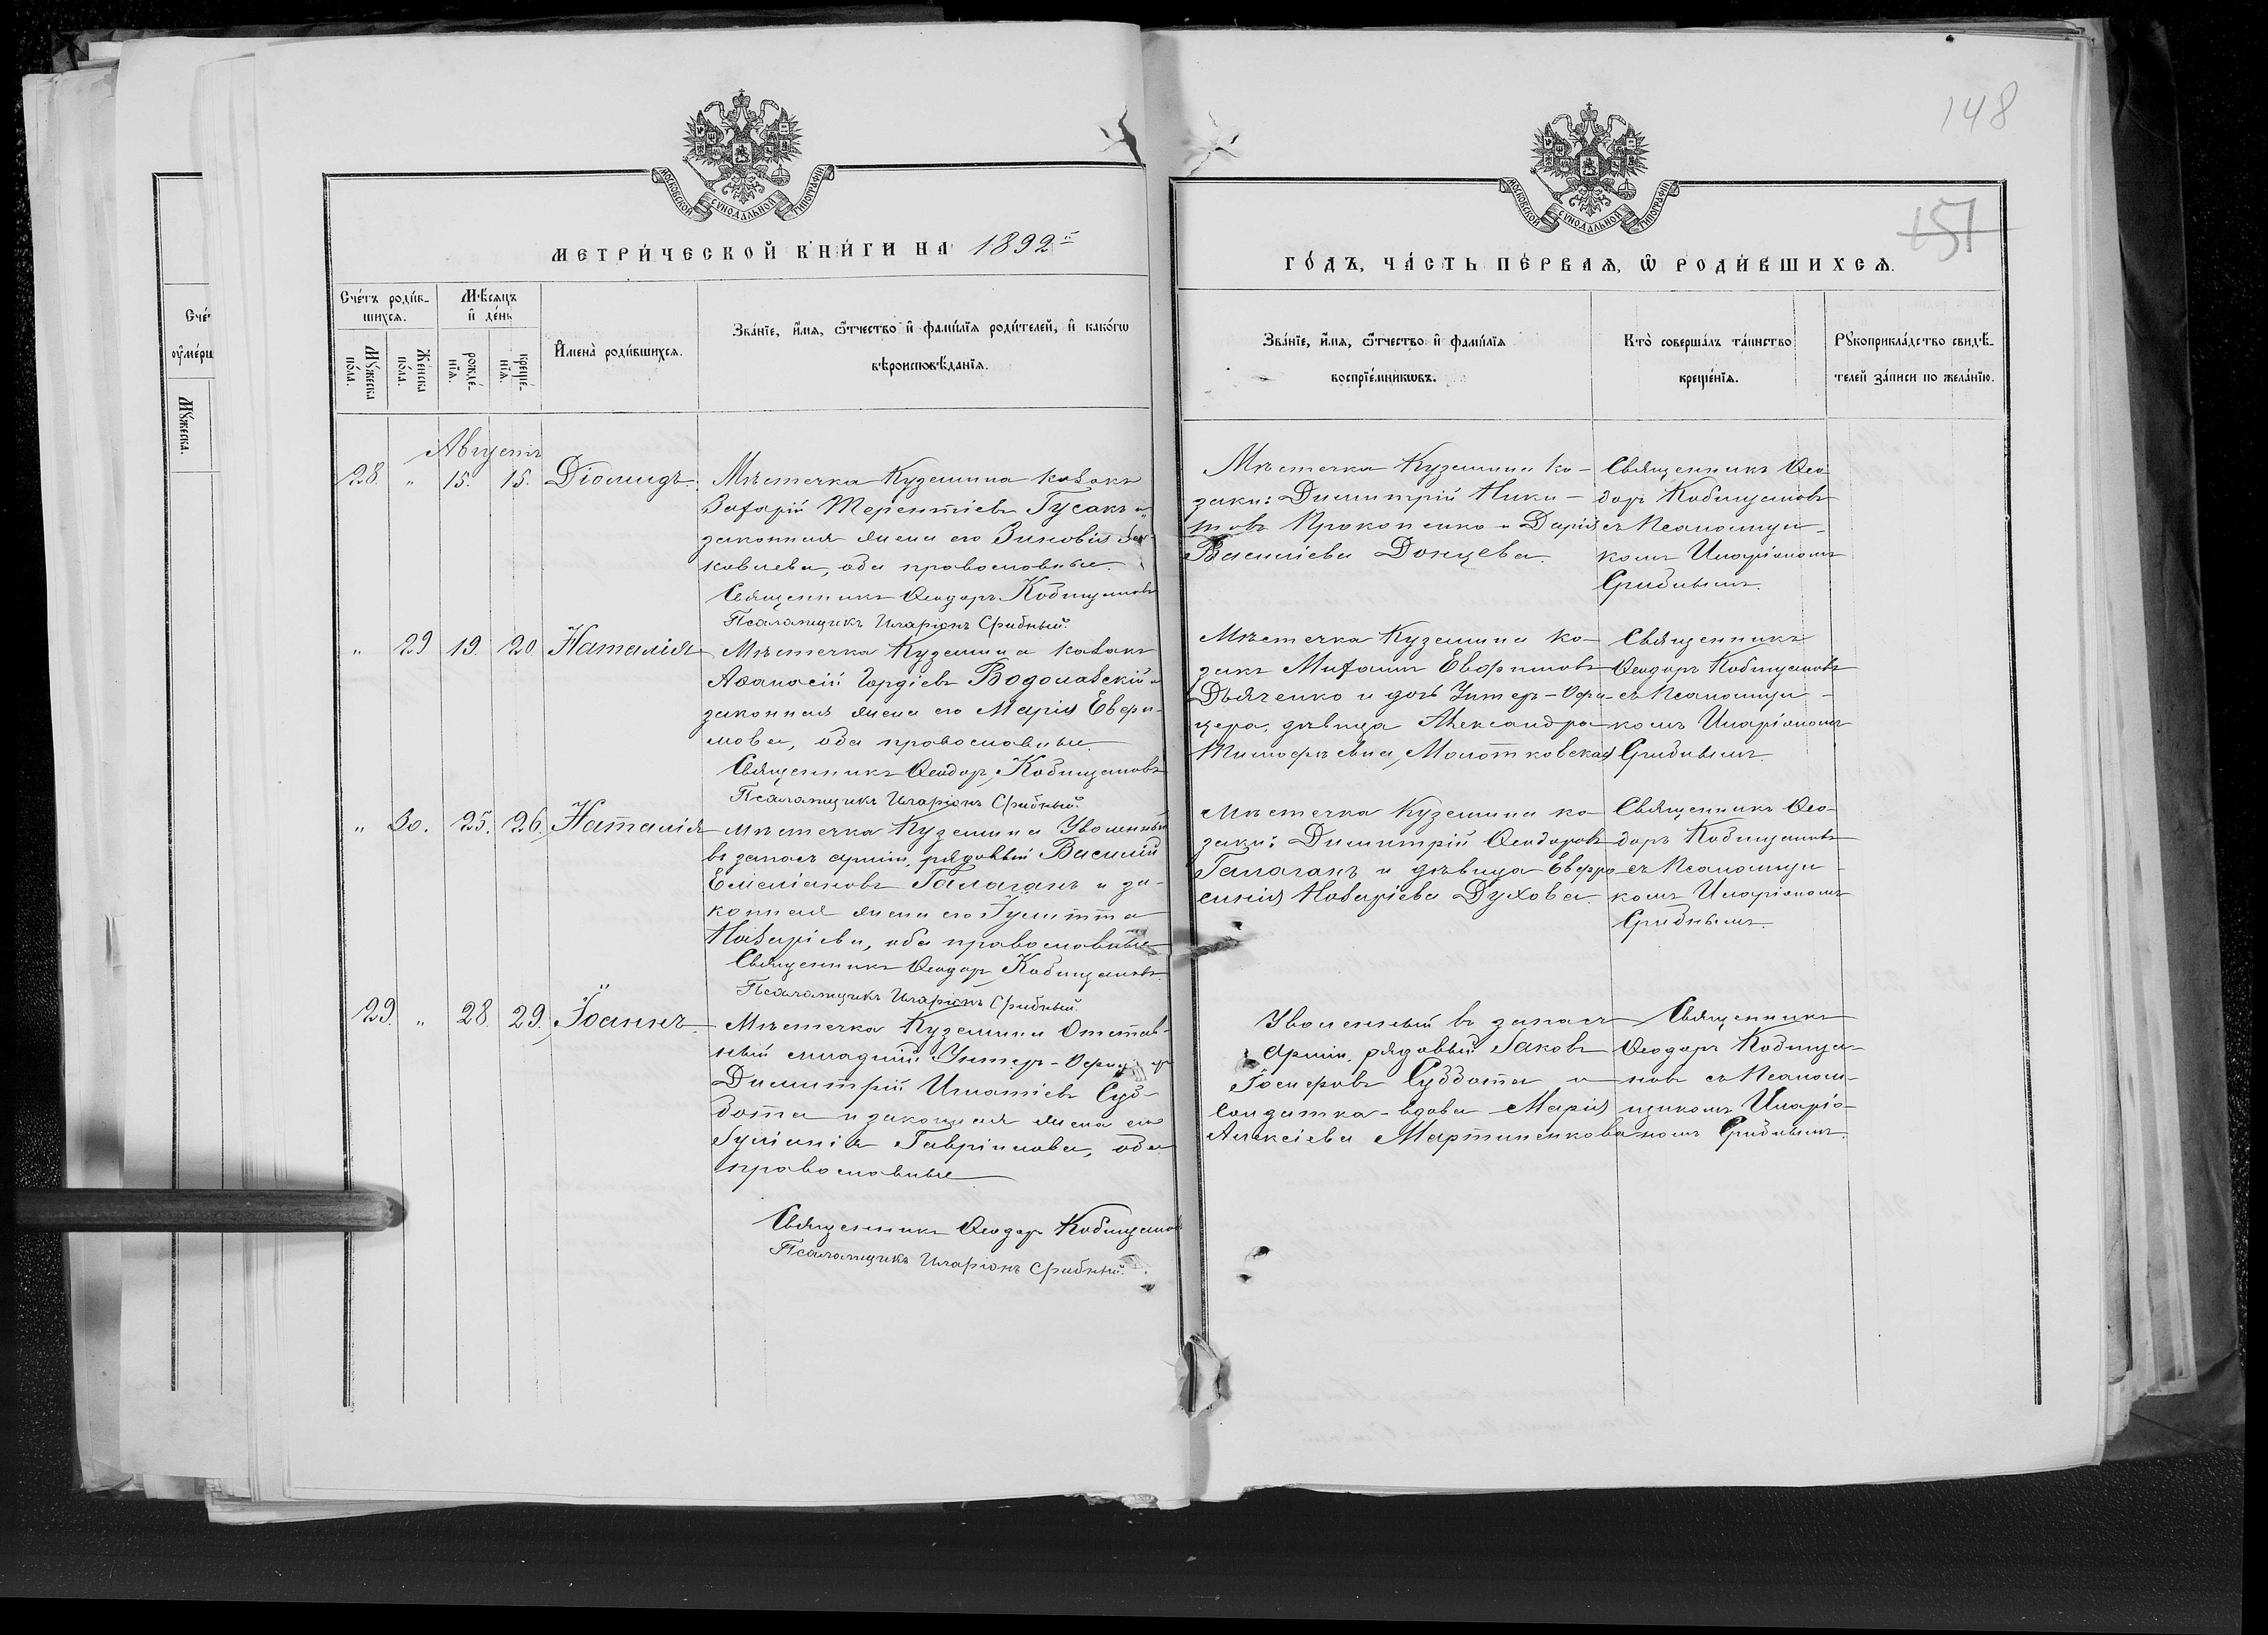 148
151
МОСКОВСКОЙ СѴНОДАЛЬНОЙ ТИПОГРАФІИ
МОСКОВСКОЙ СѴНОДАЛЬНОЙ ТИПОГРАФІИ
МЕТРИ́ЧЕСКОЙ КНИ́ГИ НА 1892й
ГО́ДЪ, ЧА́СТЬ ПЕ́РВАѦ, Ѡ РОДИ́ВШИХСѦ.
Сче́тъ роди́в-
шихсѧ.
Мꙋ́жеска по́ла.
Же́нска по́ла.
Мѣ́сѧцъ
и҆ де́нь
рожде́-
нїѧ.
креще́-
нїѧ.
И҆мена̀ роди́вшихсѧ.
Зва́нїе, и҆́мѧ, ѻ҆́тчество и҆ фами́лїѧ роди́телей, и҆ како́гѡ
вѣроисповѣ́данїѧ.
Зва́нїе, и҆́мѧ, ѻ҆́тчество и҆ фами́лїѧ
воспрїе́мникѡвъ.
Кто̀ соверша́лъ та́инство
креще́нїѧ.
Рꙋкоприкла́дство свидѣ́-
телей за́писи по жела́нїю.
Мꙋ́жеска.
Августъ
28. " 15. 15. Діомидъ.
Мѣстечка Куземина козакъ
Захарій Терентіевъ Гусакъ и
законная жена его Зиновія
ковлева, оба православные.
Священникъ Ѳеодоръ Кобищановъ
Псаломщикъ Иларіонъ Срибный.
Мѣстечка Куземина ко-
заки: Димитрій Ники-
товъ Прокопенко и Дарія
Василіева Донцева.
Священникъ Ѳео-
доръ Кобищановъ
съ Псаломщи-
комъ Иларіономъ
Срибнымъ.
" 29 19. 20 Наталія
Мѣстечка Куземина козакъ
Аѳанасій Гордіевъ Водолазскій и
законная жена его Марія Евфи-
мова, оба православные.
Священникъ Ѳеодоръ Кобищановъ
Псаломщикъ Иларіонъ Срибный.
Мѣстечка Куземина ко-
закъ Михаилъ Евфимовъ
Дьяченко и дочь Унтеръ-Офи-
цера, дѣвица Александра
Тимоѳеевна Молотковская
Священникъ
Ѳеодоръ Кобищановъ
съ Псаломщи-
комъ Иларіономъ
Срибнымъ.
" 30. 25. 26. Наталія
Мѣстечка Куземина Уволенный
въ запасъ арміи, рядовый Василій
Емеліановъ Галаганъ и за-
конная жена его Іулитта
Назаріева, оба православные
Священникъ Ѳеодоръ Кобищановъ.
Псаломщикъ Иларіонъ Срибный.
Мѣстечка Куземина ко-
заки: Димитрій Ѳеодоровъ
Галаганъ и дѣвица Евфро-
синія Назаріева Духова.
Священникъ Ѳео-
доръ Кобищановъ
съ Псаломщи-
комъ Иларіономъ
Срибнымъ.
29. " 28. 29. Іоаннъ.
Мѣстечка Куземина Отстав-
ный младшій Унтеръ-Офицеръ
Димитрій Игнатіевъ Суб-
бота и законная жена его
Іуліанія Гавріилова, оба
православные
Священникъ Ѳеодоръ Кобищановъ
Псаломщикъ Иларіонъ Срибный.
Уволенный въ запасъ
арміи, рядовый Іаковъ
Іосифовъ Суббота и
солдатка-вдова Марія
Алексіева Мартиненкова
Священникъ
Ѳеодоръ Кобища-
новъ съ Псалом-
щикомъ Иларіо-
номъ Срибнымъ.